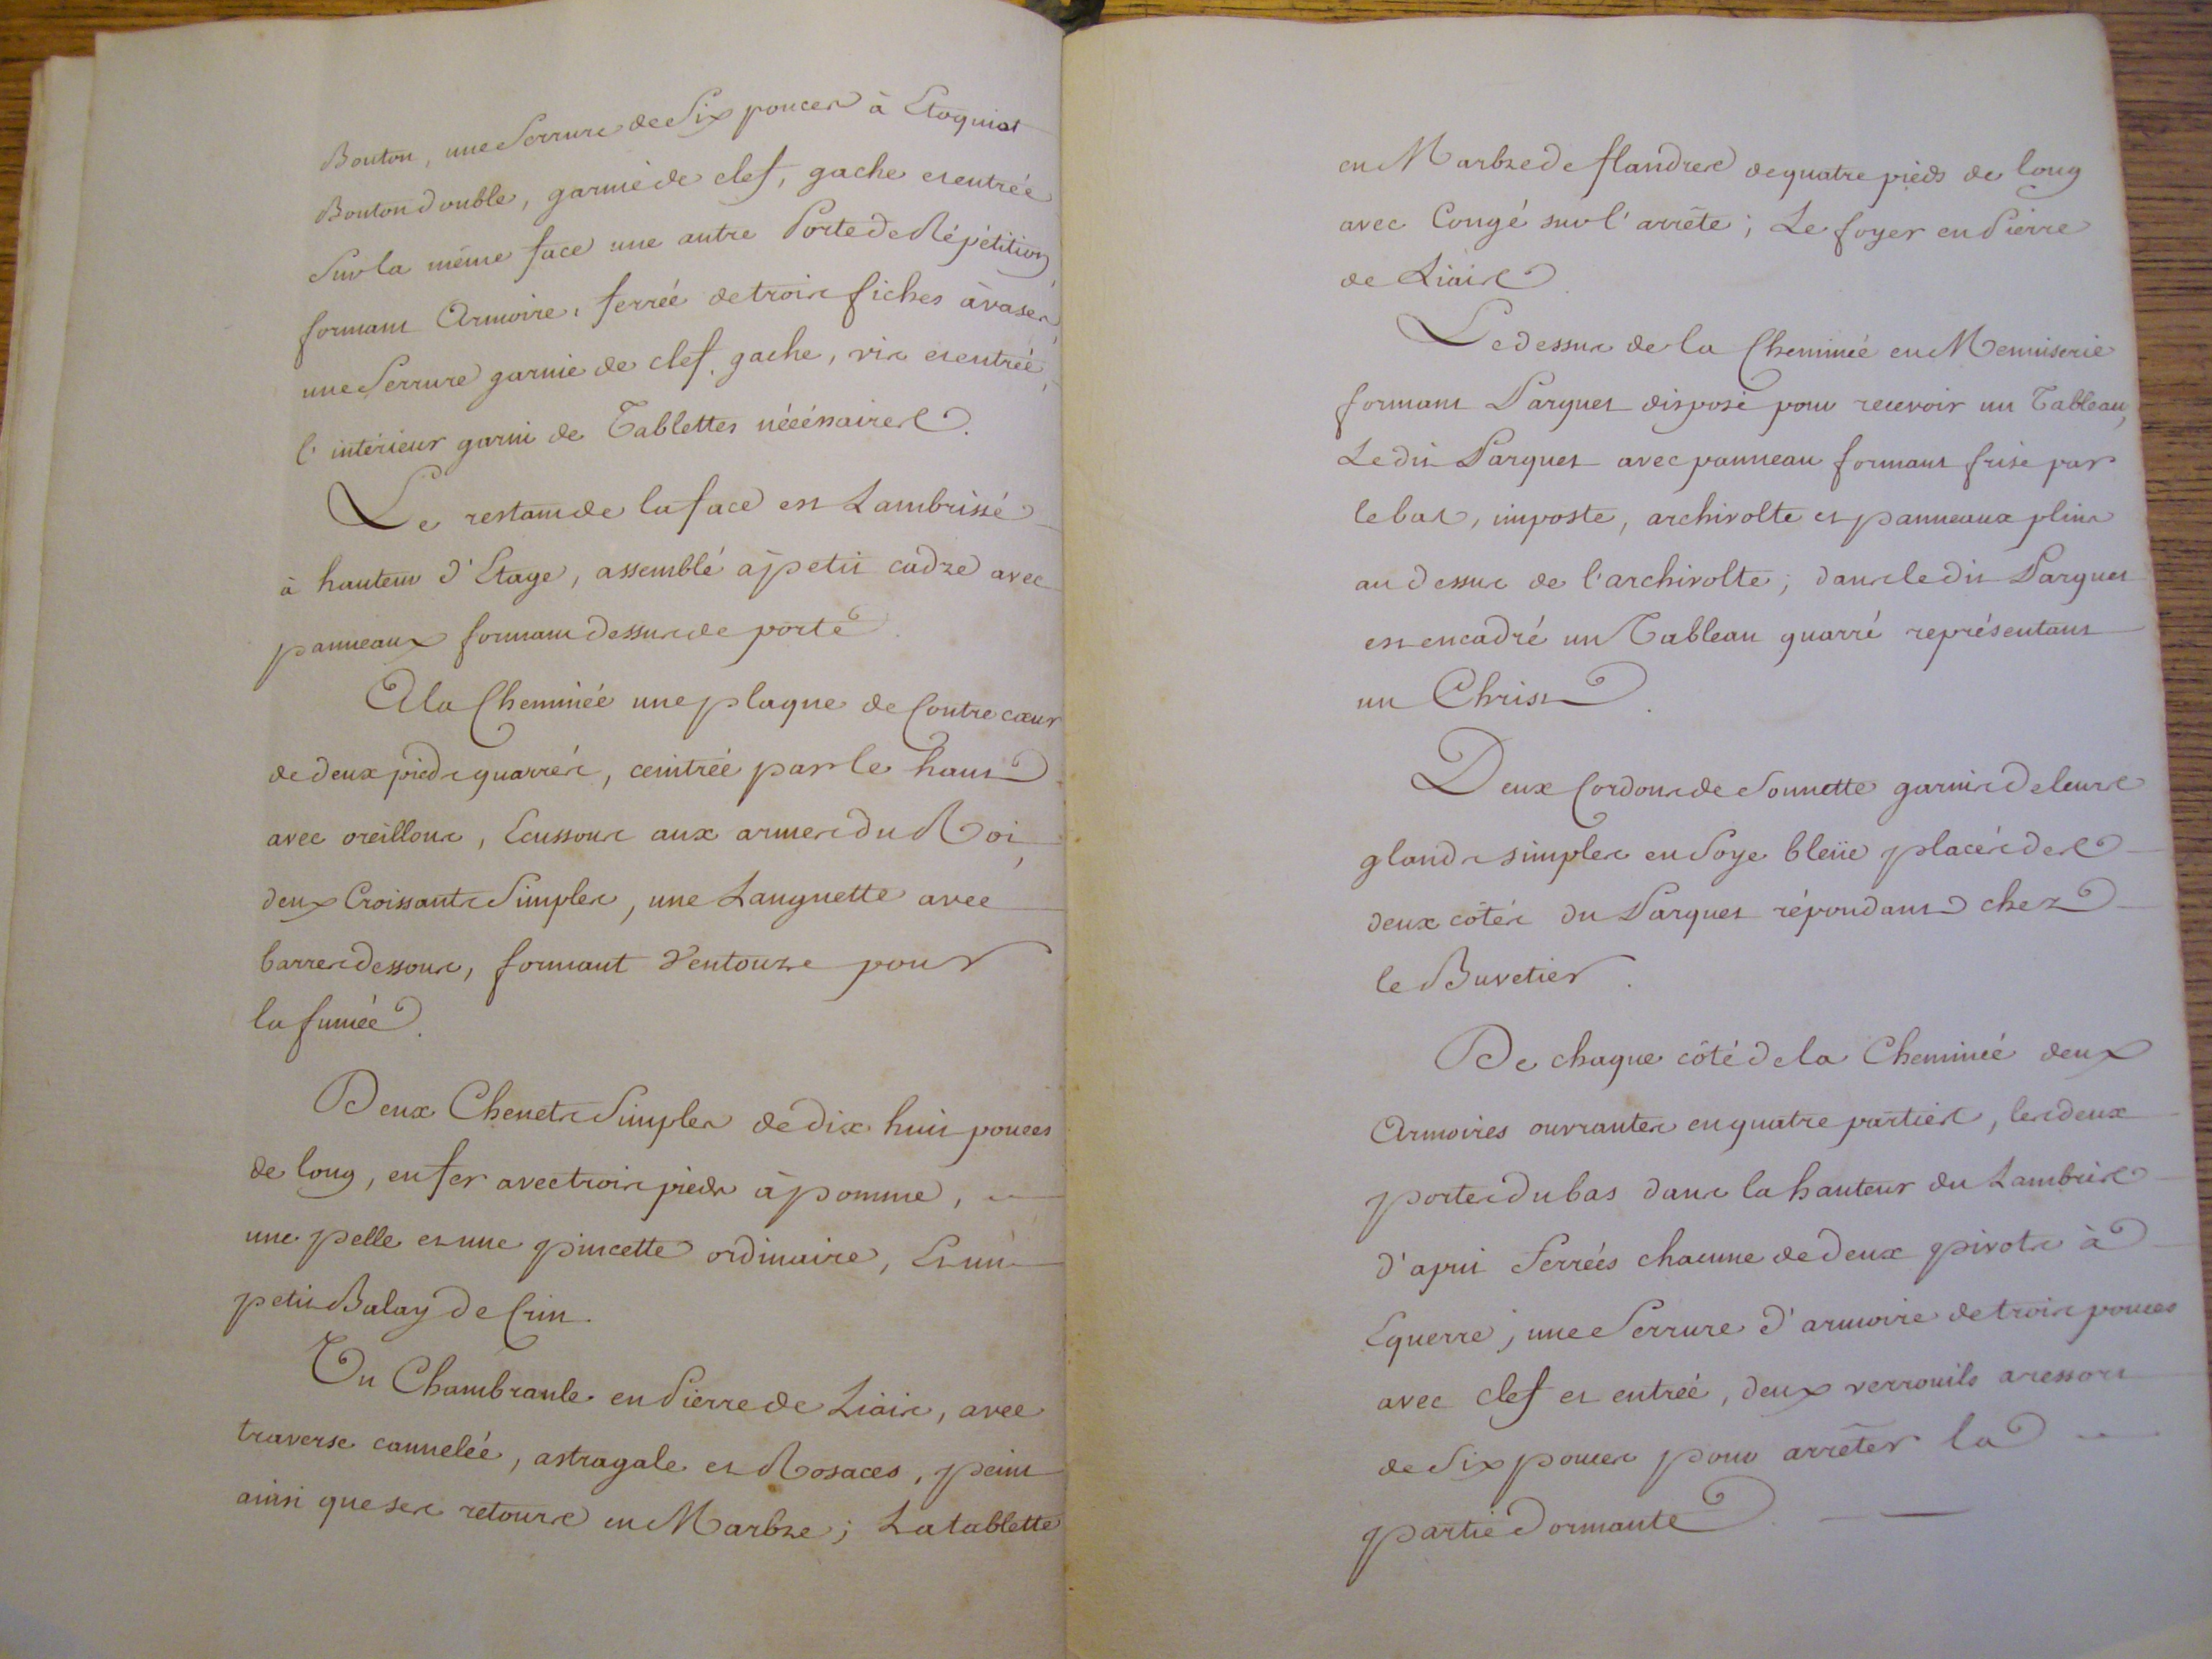 Bouton, une Serrure de Six pouces à Etoquiot
Bouton double, garnie de clef, gache et entrée
Sur la même face une autre Porte de Répétition
formant Armoire, ferrée de trois fiches à vases,
une Serrure garnie de clef, gache, vis et entrée,
l'intérieur garni de Tablettes nécéssaires.
Le restant de la face est Lambrissé
à hauteur d'Etage, assemblé à petit cadre avec
panneaux formant dessus de porte.
A la Cheminée une plaque de Contre cœur
de deux pieds quarrés, ceintrée par le haut
avec oreillons, Ecussons aux armes du Roi,
deux Croissants Simples, une Languette avec
barres dessous, formant Ventouze pour
la fumée.
Deux Chenets Simples de dix huit pouces
de long, en fer avec trois pieds à pomme,
une pelle et une pincette ordinaire, Et un
petit Balay de Crin.
Un Chambranle en Pierre de Liais, avec
traverse cannelée, astragale et Rosaces, peint
ainsi que ses retours en Marbre; La tablette
en Marbre de flandres de quatre pieds de long
avec Congé sur l'arrête; Le foyer en Pierre
de Liais.
Le dessus de la Cheminée en Menuiserie
formant Parquet disposé pour recevoir un Tableau,
Le dit Parquet avec panneau formant frise par
le bas, imposte, archivolte et panneaux plins
au dessus de l'archivolte; dans le dit Parquet
est encadré un Tableau quarré représentant
un Christ.
Deux Cordons de Sonnette garnis de leurs
glands simples en Soye bleüe placés des
deux côtés du Parquet répondant chez
le Buvetier.
De chaque côté de la Cheminée deux
Armoires ouvrantes en quatre parties, les deux
portes du bas dans la hauteur du Lambris
d'apui ferrées chacune de deux pivots à
Equerre, une Serrure d'armoire de trois pouces
avec clef et entrée, deux verrouils a ressort
de Six pouces pour arrêter la
partie dormante.